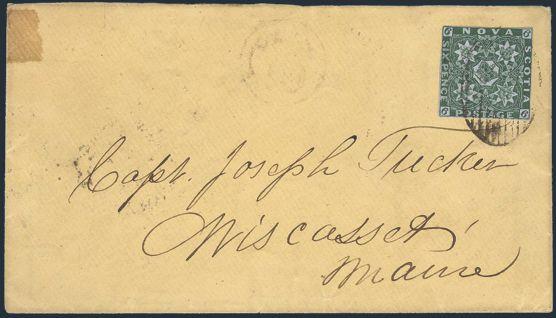 NOVA
SIXPENCE
SCOTIA
POSTAGE
6
6
6
6
Capt. Joseph Tucker
Wiscasset
Maine